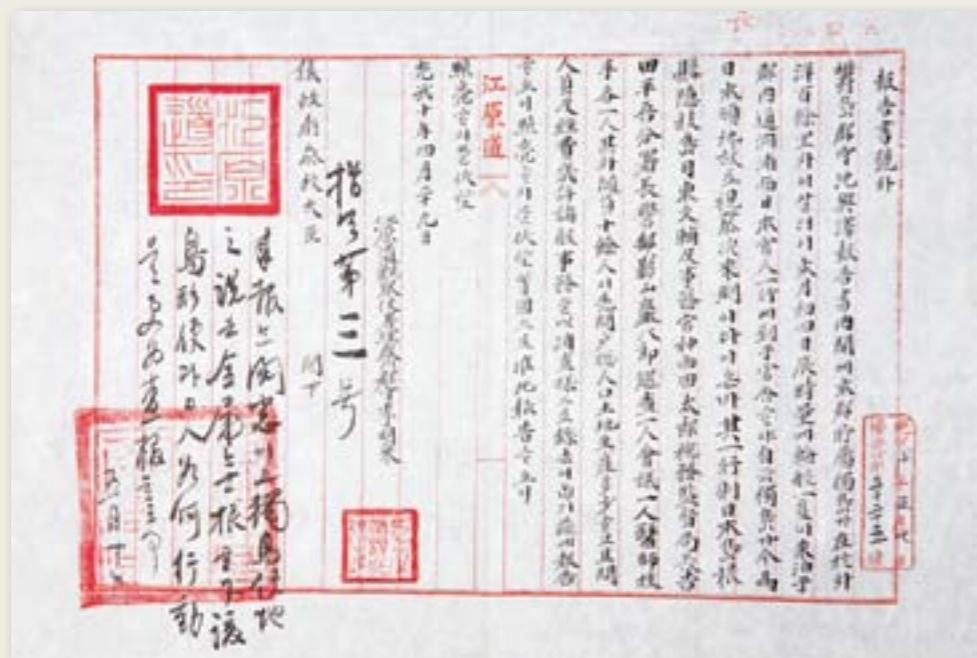 報告書號外
鬱島郡守沈興澤報告書內開에本郡所屬獨島가在於外
洋百餘里外이삽더니本月初四日辰時量에輪船一隻이來泊于
郡內道洞浦而日本官人一行이到于官舍ᄒᆞ야自云獨島가今爲
日本領地故로視察次來到이다이온바其一行則日本島根
縣隱技島司東文輔及事務官神西田太郎稅務監督局長吉
田平吾分署長警部影山巖八郎巡査一人會議一人醫師技
手各一人其外隨員十餘人이先問戶總人口土地生産多少ᄒᆞ고且問
人員及經費幾許諸般事務를以調査樣으로錄去이ᄋᆞᆸ기玆以報告
ᄒᆞ오니照亮ᄒᆞ시믈伏望等因으로准此報告ᄒᆞ오니
江原道
照亮ᄒᆞ시믈伏望
光武十年四月二十九日
江原道觀察使署理春川郡守李明來
議政府參政大臣 閣下
指令第三号
來報と閱悉이고獨島領地
之說은全屬無根하나該
島形便과日人如何行動
을更爲査報할事
五月十